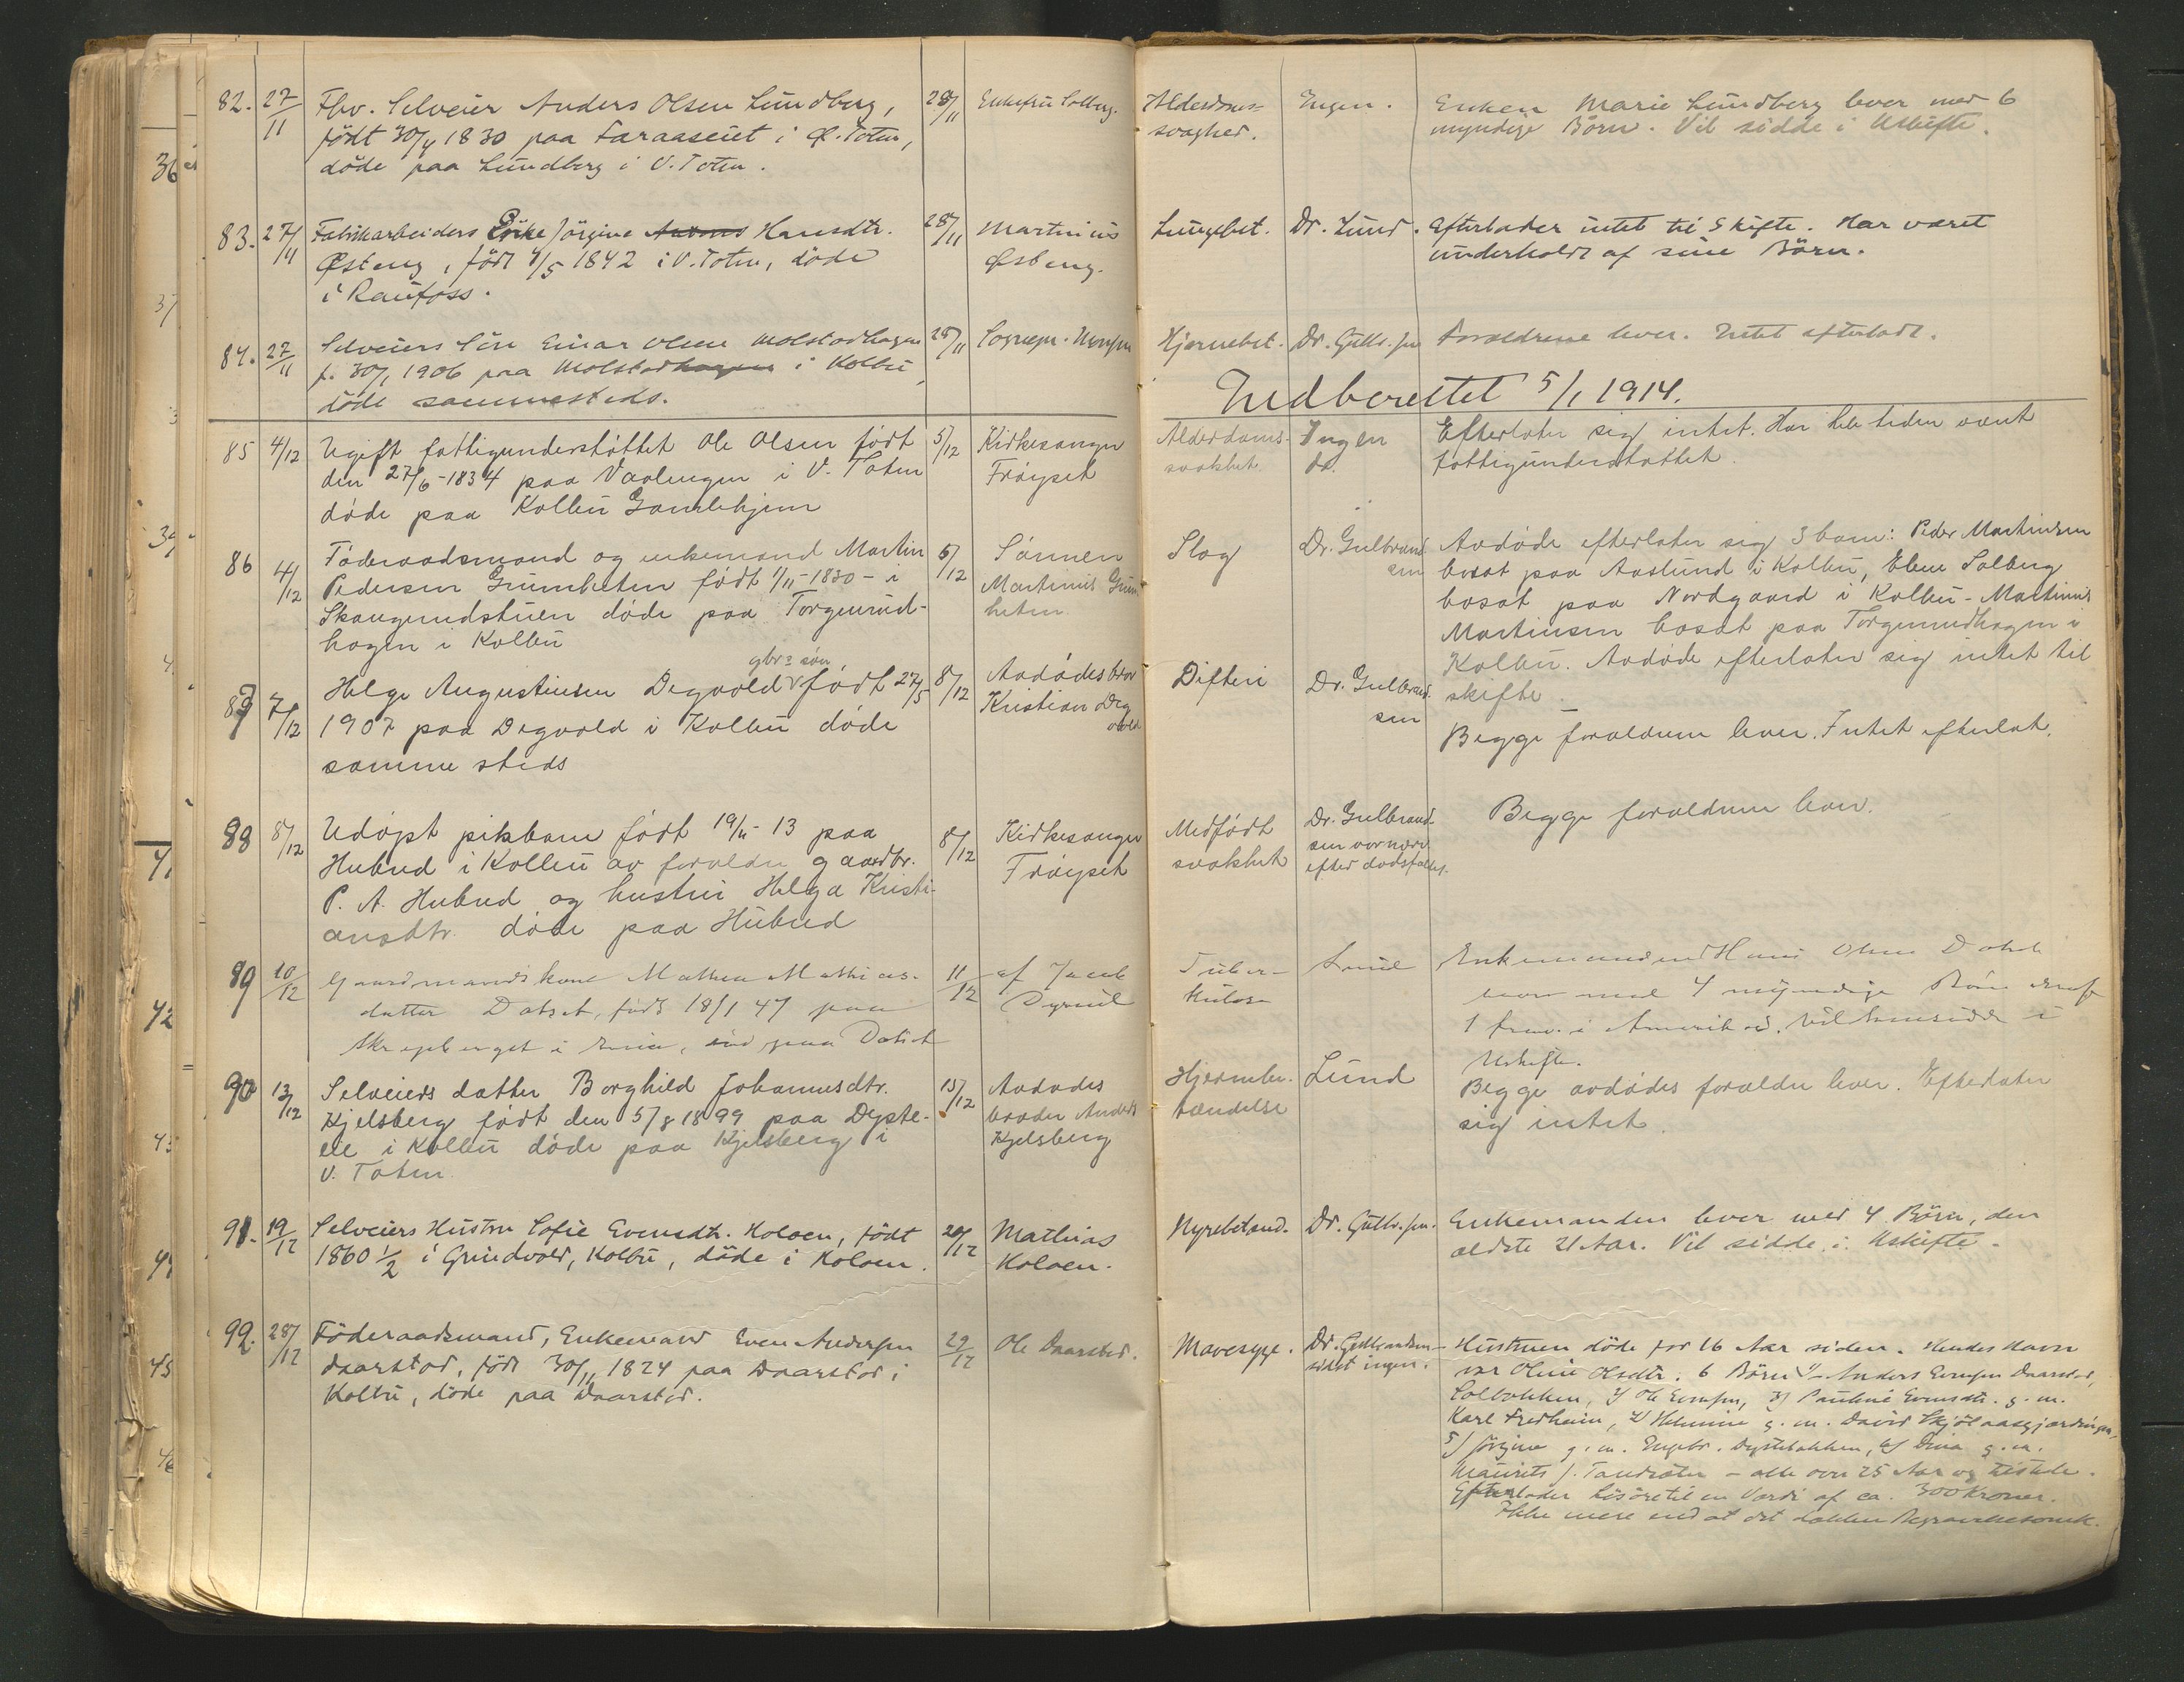 82. 27/11 Fhv. Selveier Anders Olsen Lundberg, 28/11 Enkefru Solberg. Alderdoms- Ingen. Enken Marie Lundberg lever med 6
født 30/4 1830 paa Faraaseiet i Ø. Toten, svaghed. myndige Børn. Vil sidde i Uskifte.
døde paa Lundberg i V. Toten.
83. 27/11 Fabrikarbeiders Enke Jörgine Hansdtr. 28/11 Martinius Lungebet. Dr. Lund. Efterlader intet til Skifte. Har været
Østeng, født 4/5 1842 i V. Toten, døde Østeng. underholdt af sine Børn.
i Raufoss.
84. 27/11 Selveiers Søn Einar Olsen Molstadhagen 28/11 Sognepr. Hjernebet. Dr. Gulbr.sen Forældrene lever. Intet efterladt.
f. 30/1 1906 paa Molstadhagen i Kolbu,
døde sammesteds.
Indberettet 5/1 1914.
85 4/12 Ugift fattigunderstøttet Ole Olsen født 5/12 Kirkesanger Alderdoms- Ingen Efterlater sig intet. Har hele tiden vært
den 27/6-1834 paa Vaalengen i V. Toten Frøyset svakhet. dr. fattigunderstøttet.
døde paa Kolbu Gamlehjem
86 4/12 Føderaadsmand og enkemand Martin 6/12 Sønnen Slag Dr. Gulbrand- Avdøde efterlater sig 3 barn: Peder Martinsen
Pedersen Grümheten født 1/11-1830 - i Martinius Grüm- sen bosat paa Aaslund i Kolbu, Elene Solberg
Skaugrudstuen døde paa Torgunrud- heten bosat paa Nordgaard i Kolbu - Martinius
hagen i Kolbu Martinsen bosat paa Torgunrudhagen i
Kolbu. Avdøde efterlater sig intet til
skifte.
gbr.s søn
87 7/12 Helge Augustinsen Degvold født 27/5 8/12 Avdødes bror Difteri Dr. Gulbrand-
1907 paa Degvold i Kolbu døde Kristian Deg- sen Begge forældrene lever. Intet efterlat.
samme steds vold
88 8/12 Udøpt pikebarn født 19/11-13 paa 8/12 Kirkesanger Medfødt Dr. Gulbrand- Begge forældrene lever.
Hubred i Kolbu av forældre gaardbr. Frøyset svakhet sen var nærv.
P. A. Hubred og hustru Helga Kristi- efter dødsfaldet.
ansdtr. døde paa Hubred
89 10/12 Gaardmandskone Mathea Mathias- 11/12 af Jacob Tuber- Lund Enkemanden Hans Olsen Dahl
datter født 18/1 47 paa kulose lever med 4 myndige Børn
Skrepberget i Eina, død paa 1 i Amerika. Vil hensidde i
Uskifte.
90 13/12 Selveiers datter Borghild Johannesdtr. 15/12 Avdødes Hjernebe- Lund Begge avdødes forældre lever. Efterlater
Kjelsberg født den 5/8 1899 paa Dyste- broder Anders tændelse sig intet.
eie i Kolbu døde paa Kjelsberg i Kjelsberg
V. Toten
91. 19/12 Selveiers Hustru Sofie Evensdtr. Holoen, født 20/12 Mathias Nyrebetænd. Dr. Gulbr.sen. Enkemanden lever med 4 Børn, den
1860 1/2 i Grindvold, Kolbu, døde i Holoen. Holoen. ældste 21 Aar. Vil sidde i Uskifte.
92. 28/12 Föderaadsmand, Enkemand Even Andersen 29/12 Ole Daarstad. Mavesyge. Dr. Gulbrandsen- Hustruen døde for 16 Aar siden. Hendes Navn
Daarstad, født 30/11 1824 paa Daarstad i sidst ingen. var Oline Olsdtr. 6 Børn 1/ Anders Evensen Daarstad,
Kolbu, døde paa Daarstad. Solbakken, 2/ Ole Evensen, 3/ Pauline Evensdtr. g. m.
Karl Fredheim, 4/ Helmine g. m. David Skjølaasgjærdingen,
5/ Jörgine g. m. Engebr. Dystebakken, 6/ Dina g. m.
Maurits J. Tandsæter - alle over 25 Aar og tilstede.
Efterlader Løsøre til en Værdi af ca. 300 Kroner.
Ikke mere end at det dækker Begravelsesomk.